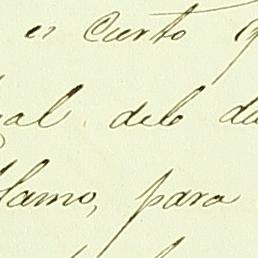 es cierto q
gal. debo da
llamo, para